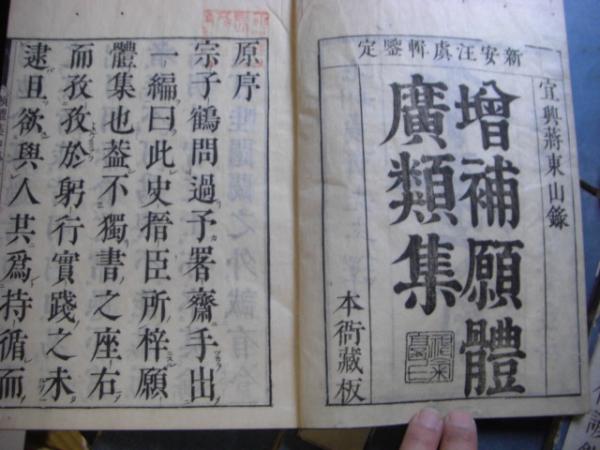 新安汪虞輯鑒定
宜興蔣東山錄
增補願體
廣類集
本衙藏板
原序
宗子鶴問過予署齋手出
一編曰此史搢臣所梓願
體集也葢不獨書之座右
而孜孜於躬行實踐之未
逮且欲與人共爲持循而